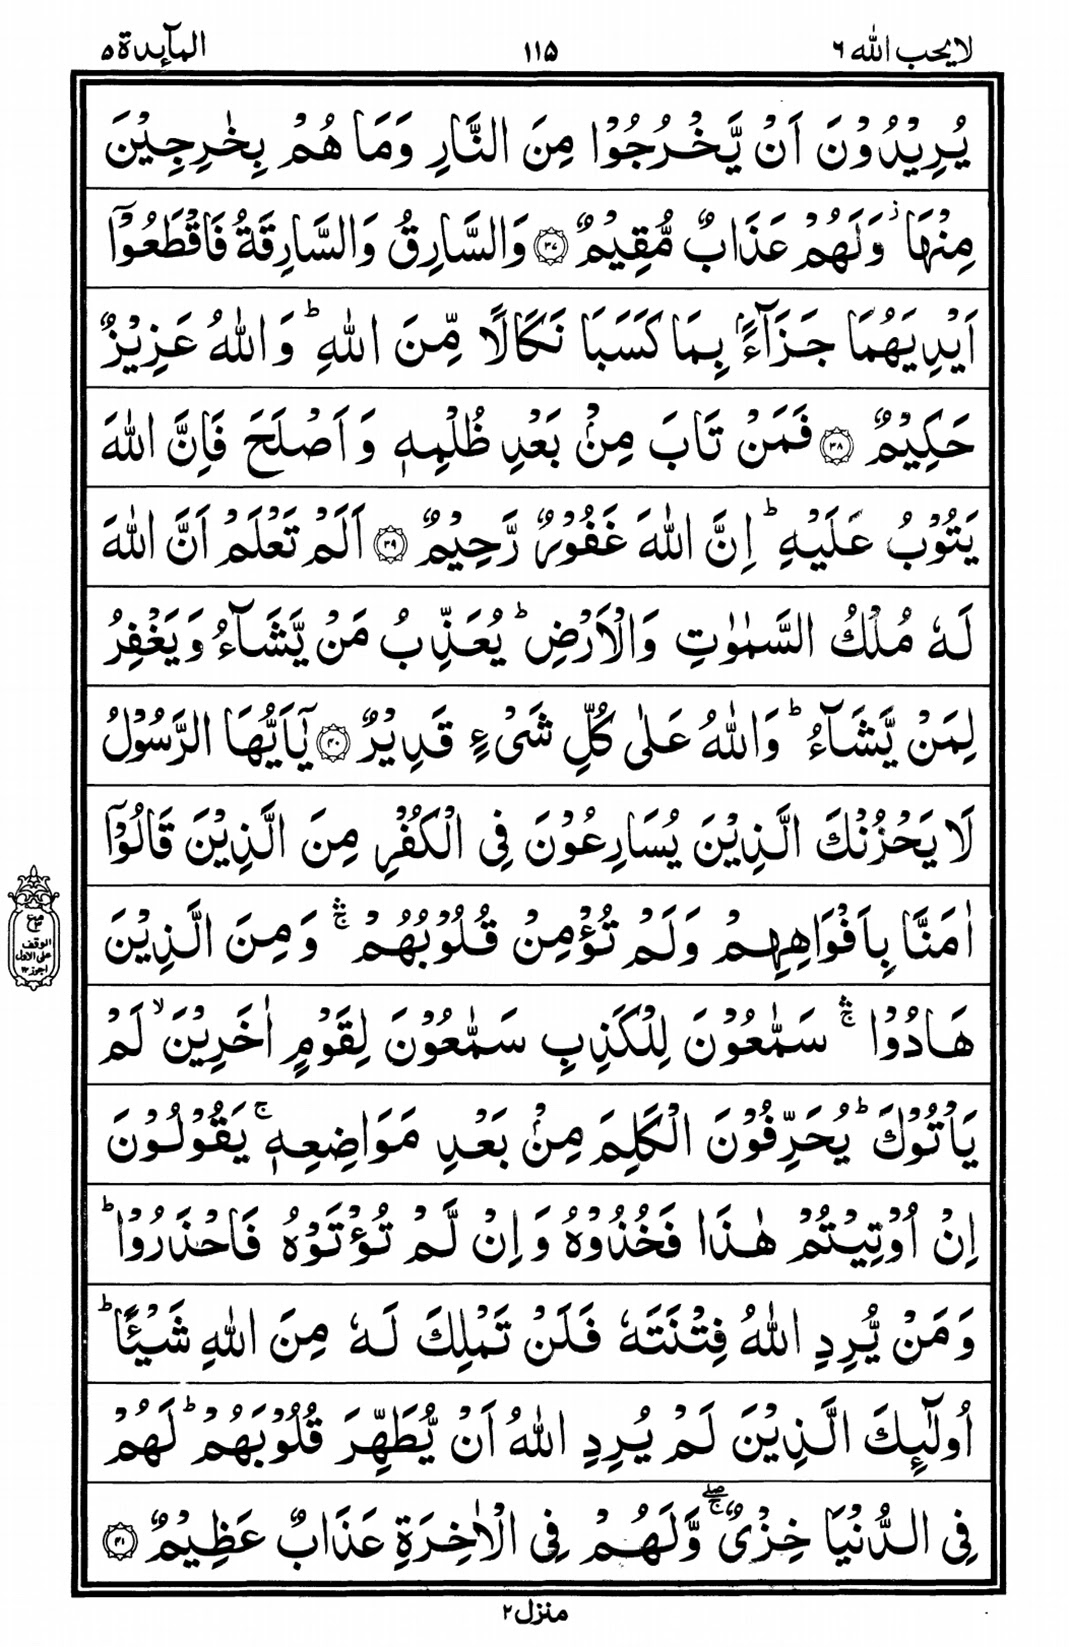 لا یحب الله ۶
۱۱۵
المآىِٕدة ۵
یُرِیْدُوْنَ اَنْ یَّخْرُجُوْا مِنَ النَّارِ وَمَا هُمْ بِخٰرِجِیْنَ
مِنْهَا ؗ وَلَهُمْ عَذَابٌ مُّقِیْمٌ ۝۳۷ وَالسَّارِقُ وَالسَّارِقَةُ فَاقْطَعُوْۤا
اَیْدِیَهُمَا جَزَآءًۢ بِمَا كَسَبَا نَكَالًا مِّنَ اللّٰهِ ؕ وَاللّٰهُ عَزِیْزٌ
حَكِیْمٌ ۝۳۸ فَمَنْ تَابَ مِنْۢ بَعْدِ ظُلْمِهٖ وَاَصْلَحَ فَاِنَّ اللّٰهَ
یَتُوْبُ عَلَیْهِ ؕ اِنَّ اللّٰهَ غَفُوْرٌ رَّحِیْمٌ ۝۳۹ اَلَمْ تَعْلَمْ اَنَّ اللّٰهَ
لَهٗ مُلْكُ السَّمٰوٰتِ وَالْاَرْضِ ؕ یُعَذِّبُ مَنْ یَّشَآءُ وَیَغْفِرُ
لِمَنْ یَّشَآءُ ؕ وَاللّٰهُ عَلٰى كُلِّ شَیْءٍ قَدِیْرٌ ۝۴۰ یٰۤاَیُّهَا الرَّسُوْلُ
لَا یَحْزُنْكَ الَّذِیْنَ یُسَارِعُوْنَ فِی الْكُفْرِ مِنَ الَّذِیْنَ قَالُوْۤا
اٰمَنَّا بِاَفْوَاهِهِمْ وَلَمْ تُؤْمِنْ قُلُوْبُهُمْ ۛۚ وَمِنَ الَّذِیْنَ
هَادُوْا ۛۚ سَمّٰعُوْنَ لِلْكَذِبِ سَمّٰعُوْنَ لِقَوْمٍ اٰخَرِیْنَ ۙ لَمْ
یَاْتُوْكَ ؕ یُحَرِّفُوْنَ الْكَلِمَ مِنْۢ بَعْدِ مَوَاضِعِهٖ ۚ یَقُوْلُوْنَ
اِنْ اُوْتِیْتُمْ هٰذَا فَخُذُوْهُ وَاِنْ لَّمْ تُؤْتَوْهُ فَاحْذَرُوْا ؕ
وَمَنْ یُّرِدِ اللّٰهُ فِتْنَتَهٗ فَلَنْ تَمْلِكَ لَهٗ مِنَ اللّٰهِ شَیْـًٔا ؕ
اُولٰٓىِٕكَ الَّذِیْنَ لَمْ یُرِدِ اللّٰهُ اَنْ یُّطَهِّرَ قُلُوْبَهُمْ ؕ لَهُمْ
فِی الدُّنْیَا خِزْیٌ ۖۚ وَّلَهُمْ فِی الْاٰخِرَةِ عَذَابٌ عَظِیْمٌ ۝۴۱
الوقف
علی الاول
منزل ۲